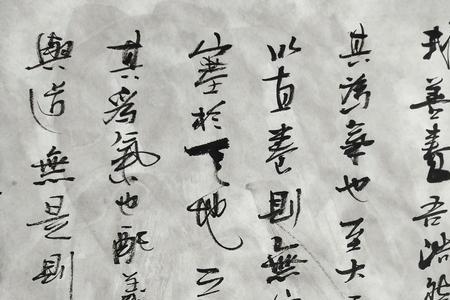 我善養吾浩然
其為氣也至大至
以直養則無
塞於天地之
其為氣也配義
與道無是則